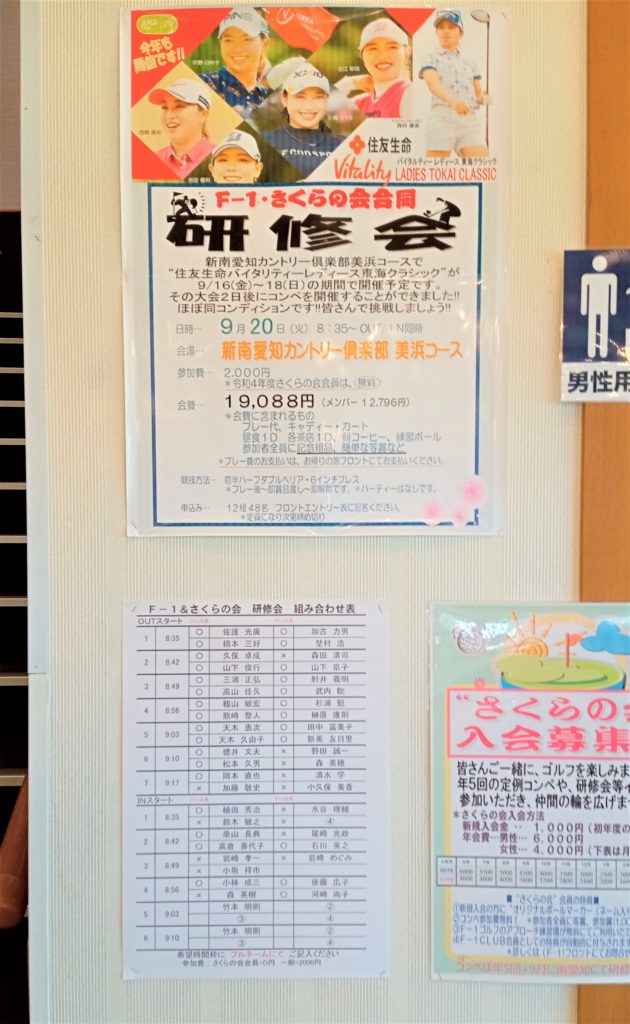 今年も
開催です!!
PING
住友生命
Vitality
バイタルティー レディース 東海クラシック
LADIES TOKAI CLASSIC
F-1・さくらの会合同
研修会
新南愛知カントリー倶楽部美浜コースで
“住友生命バイタリティーレディース東海クラシック”が
9/16(金)～18(日)の期間で開催予定です。
その大会2日後にコンペを開催することができました!!
ほぼ同コンディションです!!皆さんで挑戦しましょう!!
日時… 9月20日(火) 8:35～OUT/IN同時
会場… 新南愛知カントリー倶楽部 美浜コース
参加費… 2,000円
*令和4年度さくらの会会員は、(無料)
会費… 19,088円 (メンバー 12,796円)
*会費に含まれるもの
プレー代、キャディー・カート
昼食1D 各茶店1D、朝コーヒー、練習ボール
参加者全員に記念粗品、簡単な等賞など
*プレー費のお支払いは、お帰りの際フロントにてお支払いください。
競技方法… 前半ハーフダブルペリア・6インチプレス
*プレー後～即賞品渡し～即解散です。*パーティーはなしです。
申込み… 12組48名 フロントエントリー表に記名ください。
*定員になり次第締め切り
男性用
F-1&さくらの会 研修会 組み合わせ表
OUTスタート
1 8:35 ○ 佐護 光廣 ○ 加古 力男
○ 橋本 三好 ○ 埜村 浩
2 8:42 ○ 久保 卓成 × 森田 清司
○ 山下 俊行 ○ 山下 京子
3 8:49 ○ 三浦 正弘 ○ 肘井 義明
○ 高山 佳久 ○ 武内 聡
4 8:56 ○ 籾山 敏宏 ○ 杉浦 勉
○ 熊崎 整人 ○ 榊原 康則
5 9:03 ○ 天木 惠次 ○ 田中 富美子
○ 天木 久由子 ○ 新美 友日里
6 9:10 ○ 徳井 文夫 × 野田 誠一
○ 松本 久男 × 森 美穂
7 9:17 ○ 岡本 直也 × 清水 学
× 加藤 敬史 × 小久保 美香
INスタート
1 8:35 ○ 植田 秀治 × 水谷 理輔
× 鈴木 敏之 ④
2 8:42 ○ 桑山 長典 × 尾崎 光哉
○ 高倉 喜代子 ○ 石川 英之
3 8:49 × 岩崎 孝一 × 岩崎 めぐみ
× 小坂 祥市
4 8:56 ○ 小林 成三 ○ 後藤 広子
× 森 英樹 ○ 河崎 尚子
5 9:03 竹本 明則 ②
③ ④
6 9:10 竹本 明則 ②
③ ④
希望時間枠に フルネームにて ご記入ください
参加費:さくらの会会員=0円 一般=2000円
“さくらの会
入会募集
皆さんご一緒に、ゴルフを楽しみま
年5回の定例コンペや、研修会等イ
参加いただき、仲間の輪を広げま
*さくらの会入会方法
新規入会金 ‥ 1,000円(初年度の
年会費…男性… 6,000円
女性… 4,000円(下表は月
■“さくらの会” 会員の特典■
①新規入会の方に“オリジナルボールマーカー(ネーム入
②コンペ参加費無料! *参加者全員に等賞、参加賞(1,0
③F-1ゴルフのアプローチ練習場が無料にてご利用いただ
④F-1CLUB会員としての特典が自動的に付与されます
*詳しくは(F-1)フロントにてお問合せ
コンペは年5回+9月に南愛知にて研修